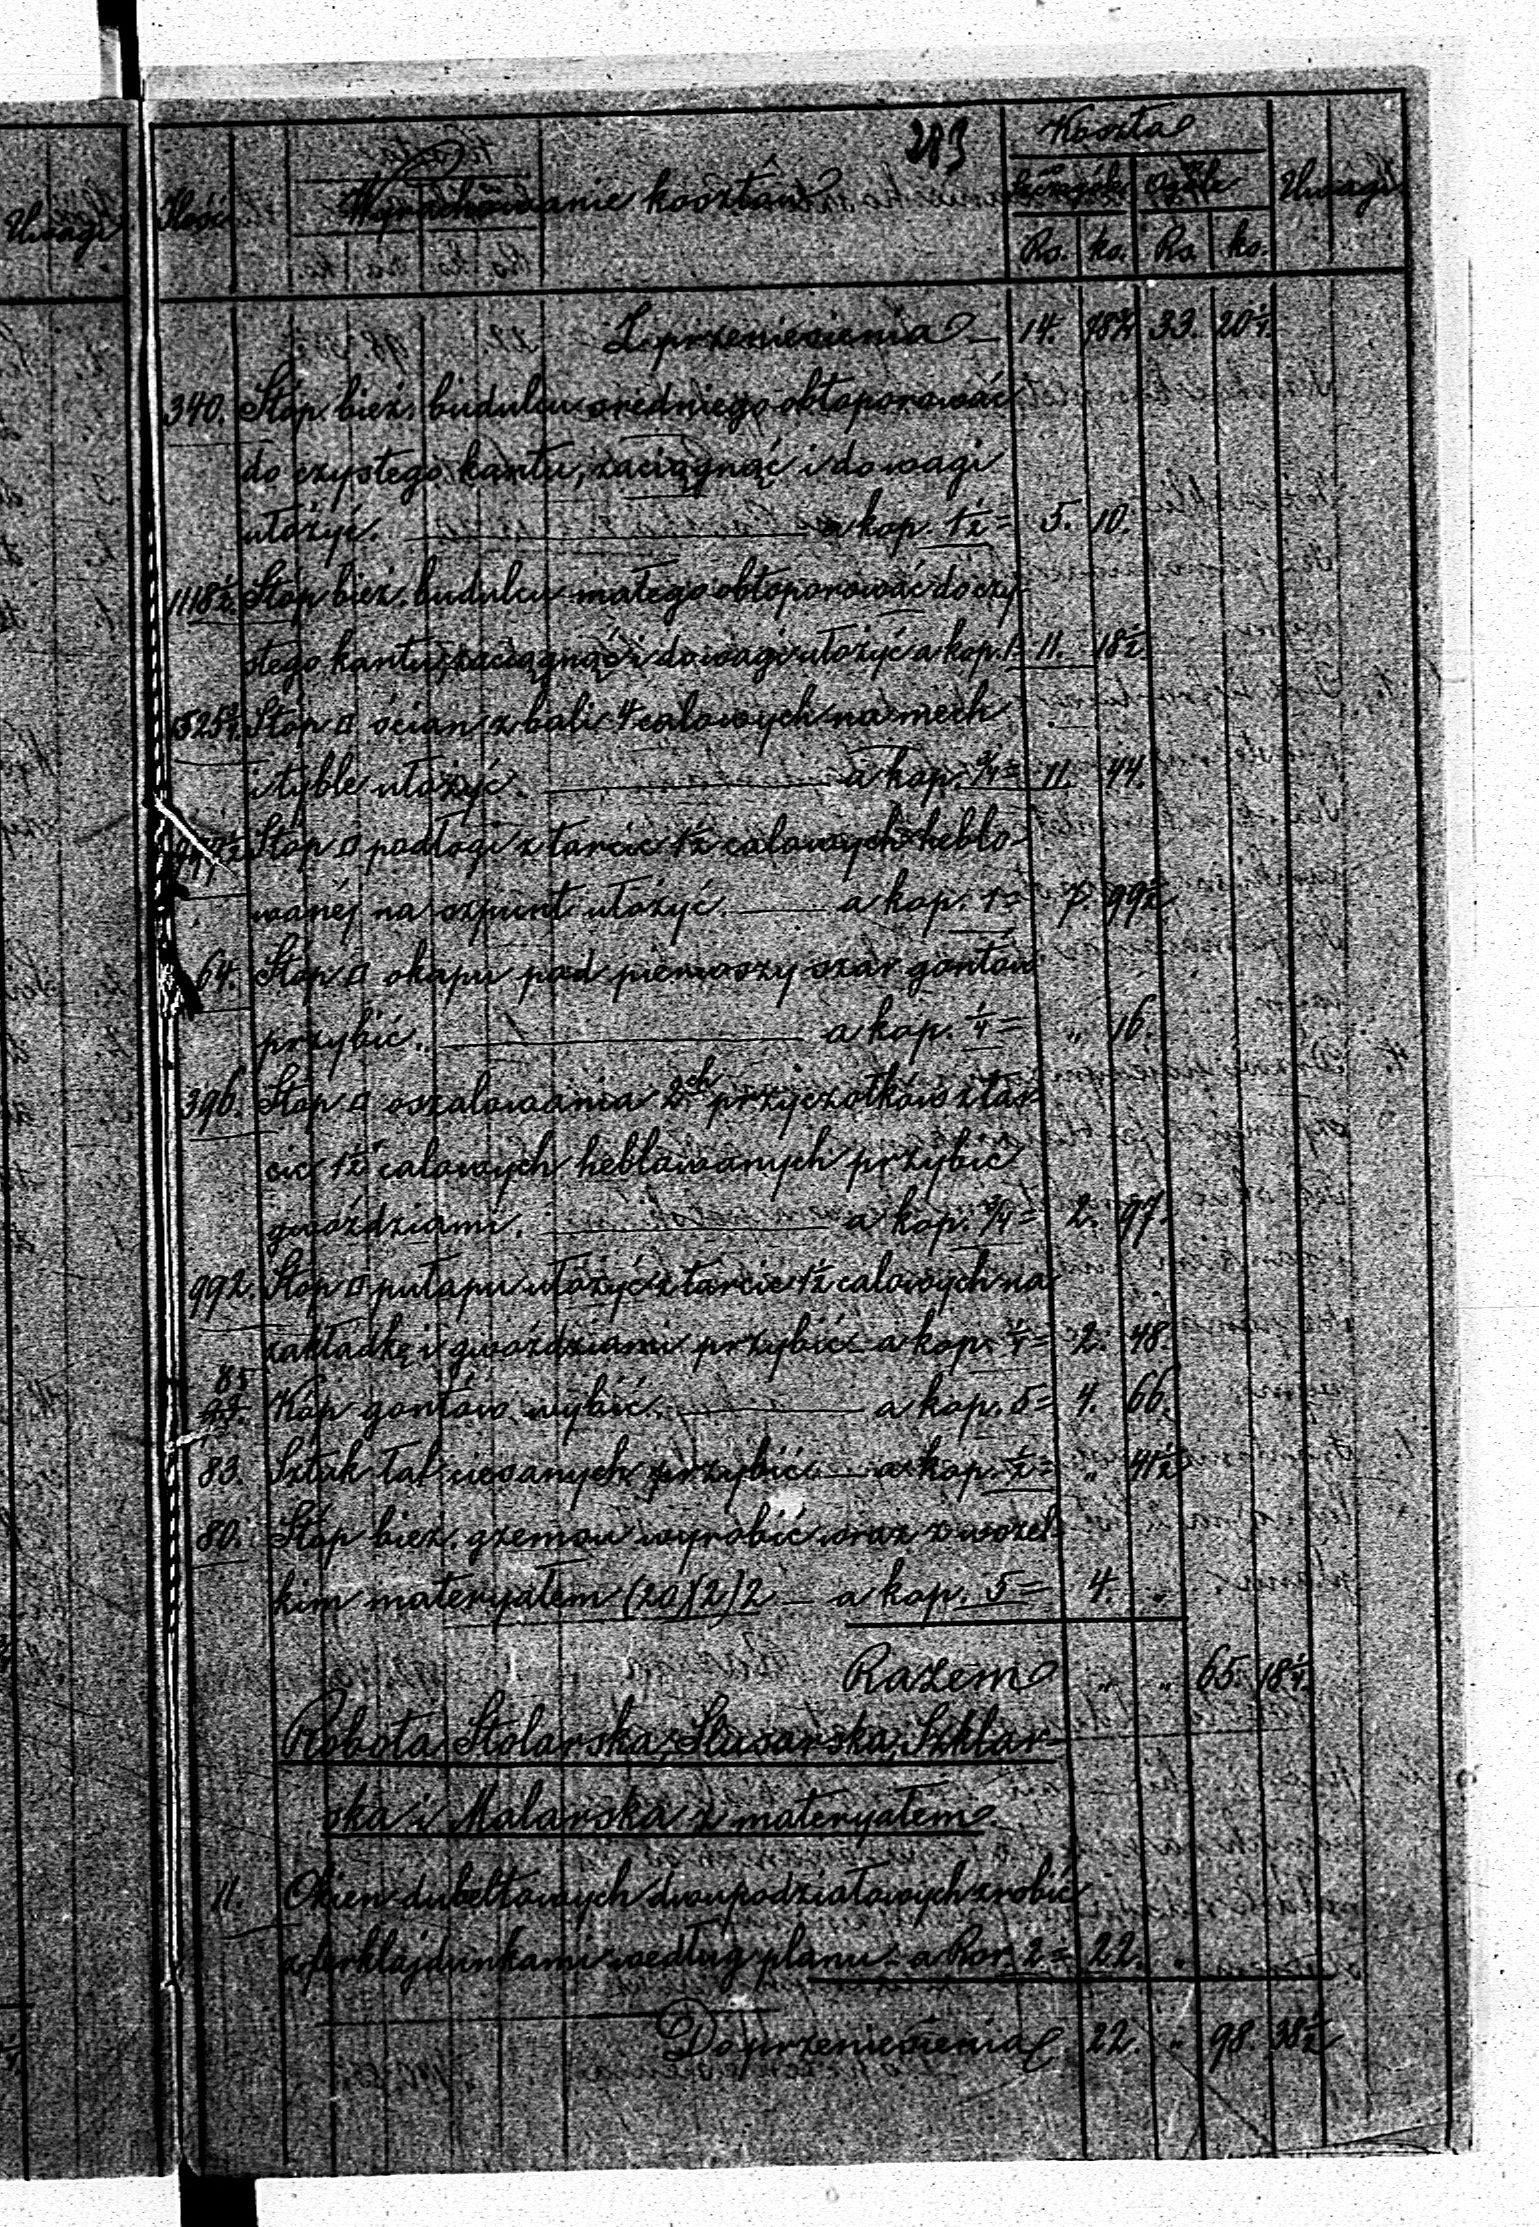 283
Uwagi
Ilość
Wyrachowanie kosztów
Koszta
Ogółe
Uwagi
Rs. ko. Rs. ko.
Z przeniesienia — 14. 78¾ 33. 20¼.
340. Stóp bież. budulcu średniego obtoporować
do czystego kantu, zaciągnąć i do wagi
ułożyć. a kop. 1½ = 5. 10.
1118½. Stóp bież. budulcu małego obtoporować do czy-
stego kantu, zaciągnąć i do wagi ułożyć a kop. 1 = 11. 18½.
1525¾. Stóp □ ścian z bali 4 calowych na mech
i tyble ułożyć. a kop. ¾ = 11. 44.
Stóp □ podłogi z tarcic 1½ calowych heblo-
wanéj na szpunt ułożyć. a kop. 1 = 7. 99½
64. Stóp □ okapu pod pierwszy szar gontów
przybić. a kop. ¼ = „ 16.
396. Stóp □ oszalowania 2ch przyczołków z tar-
cic 1½ calowych heblowanych przybić
gwoździami. a kop. ¾ = 2. 97.
992. Stóp □ pułapu ułożyć z tarcic 1½ calowych na
zakładkę i gwoździami przybić a kop. ¼ = 2. 48.
85
Kóp gontów wybić. a kop. 5 = 4. 66.
83. Sztuk łat ciesanych przybić. a kop. ½ = „ 41½
80. Stóp bież. gzemsu wyrobić wraz z wszel-
kim materyałem (20)(2)2 — a kop. 5 = 4. „
Razem „ „ 65. 18¼.
Robota Stolarska, Slusarska, Szklar-
ska i Malarska z materyałem.
11. Okien dubeltowych dwupodziałowych zrobić
z ferklajdunkami według planu a Rsr. 2 = 22. „
Do przeniesienia 22. „ 98. 38½